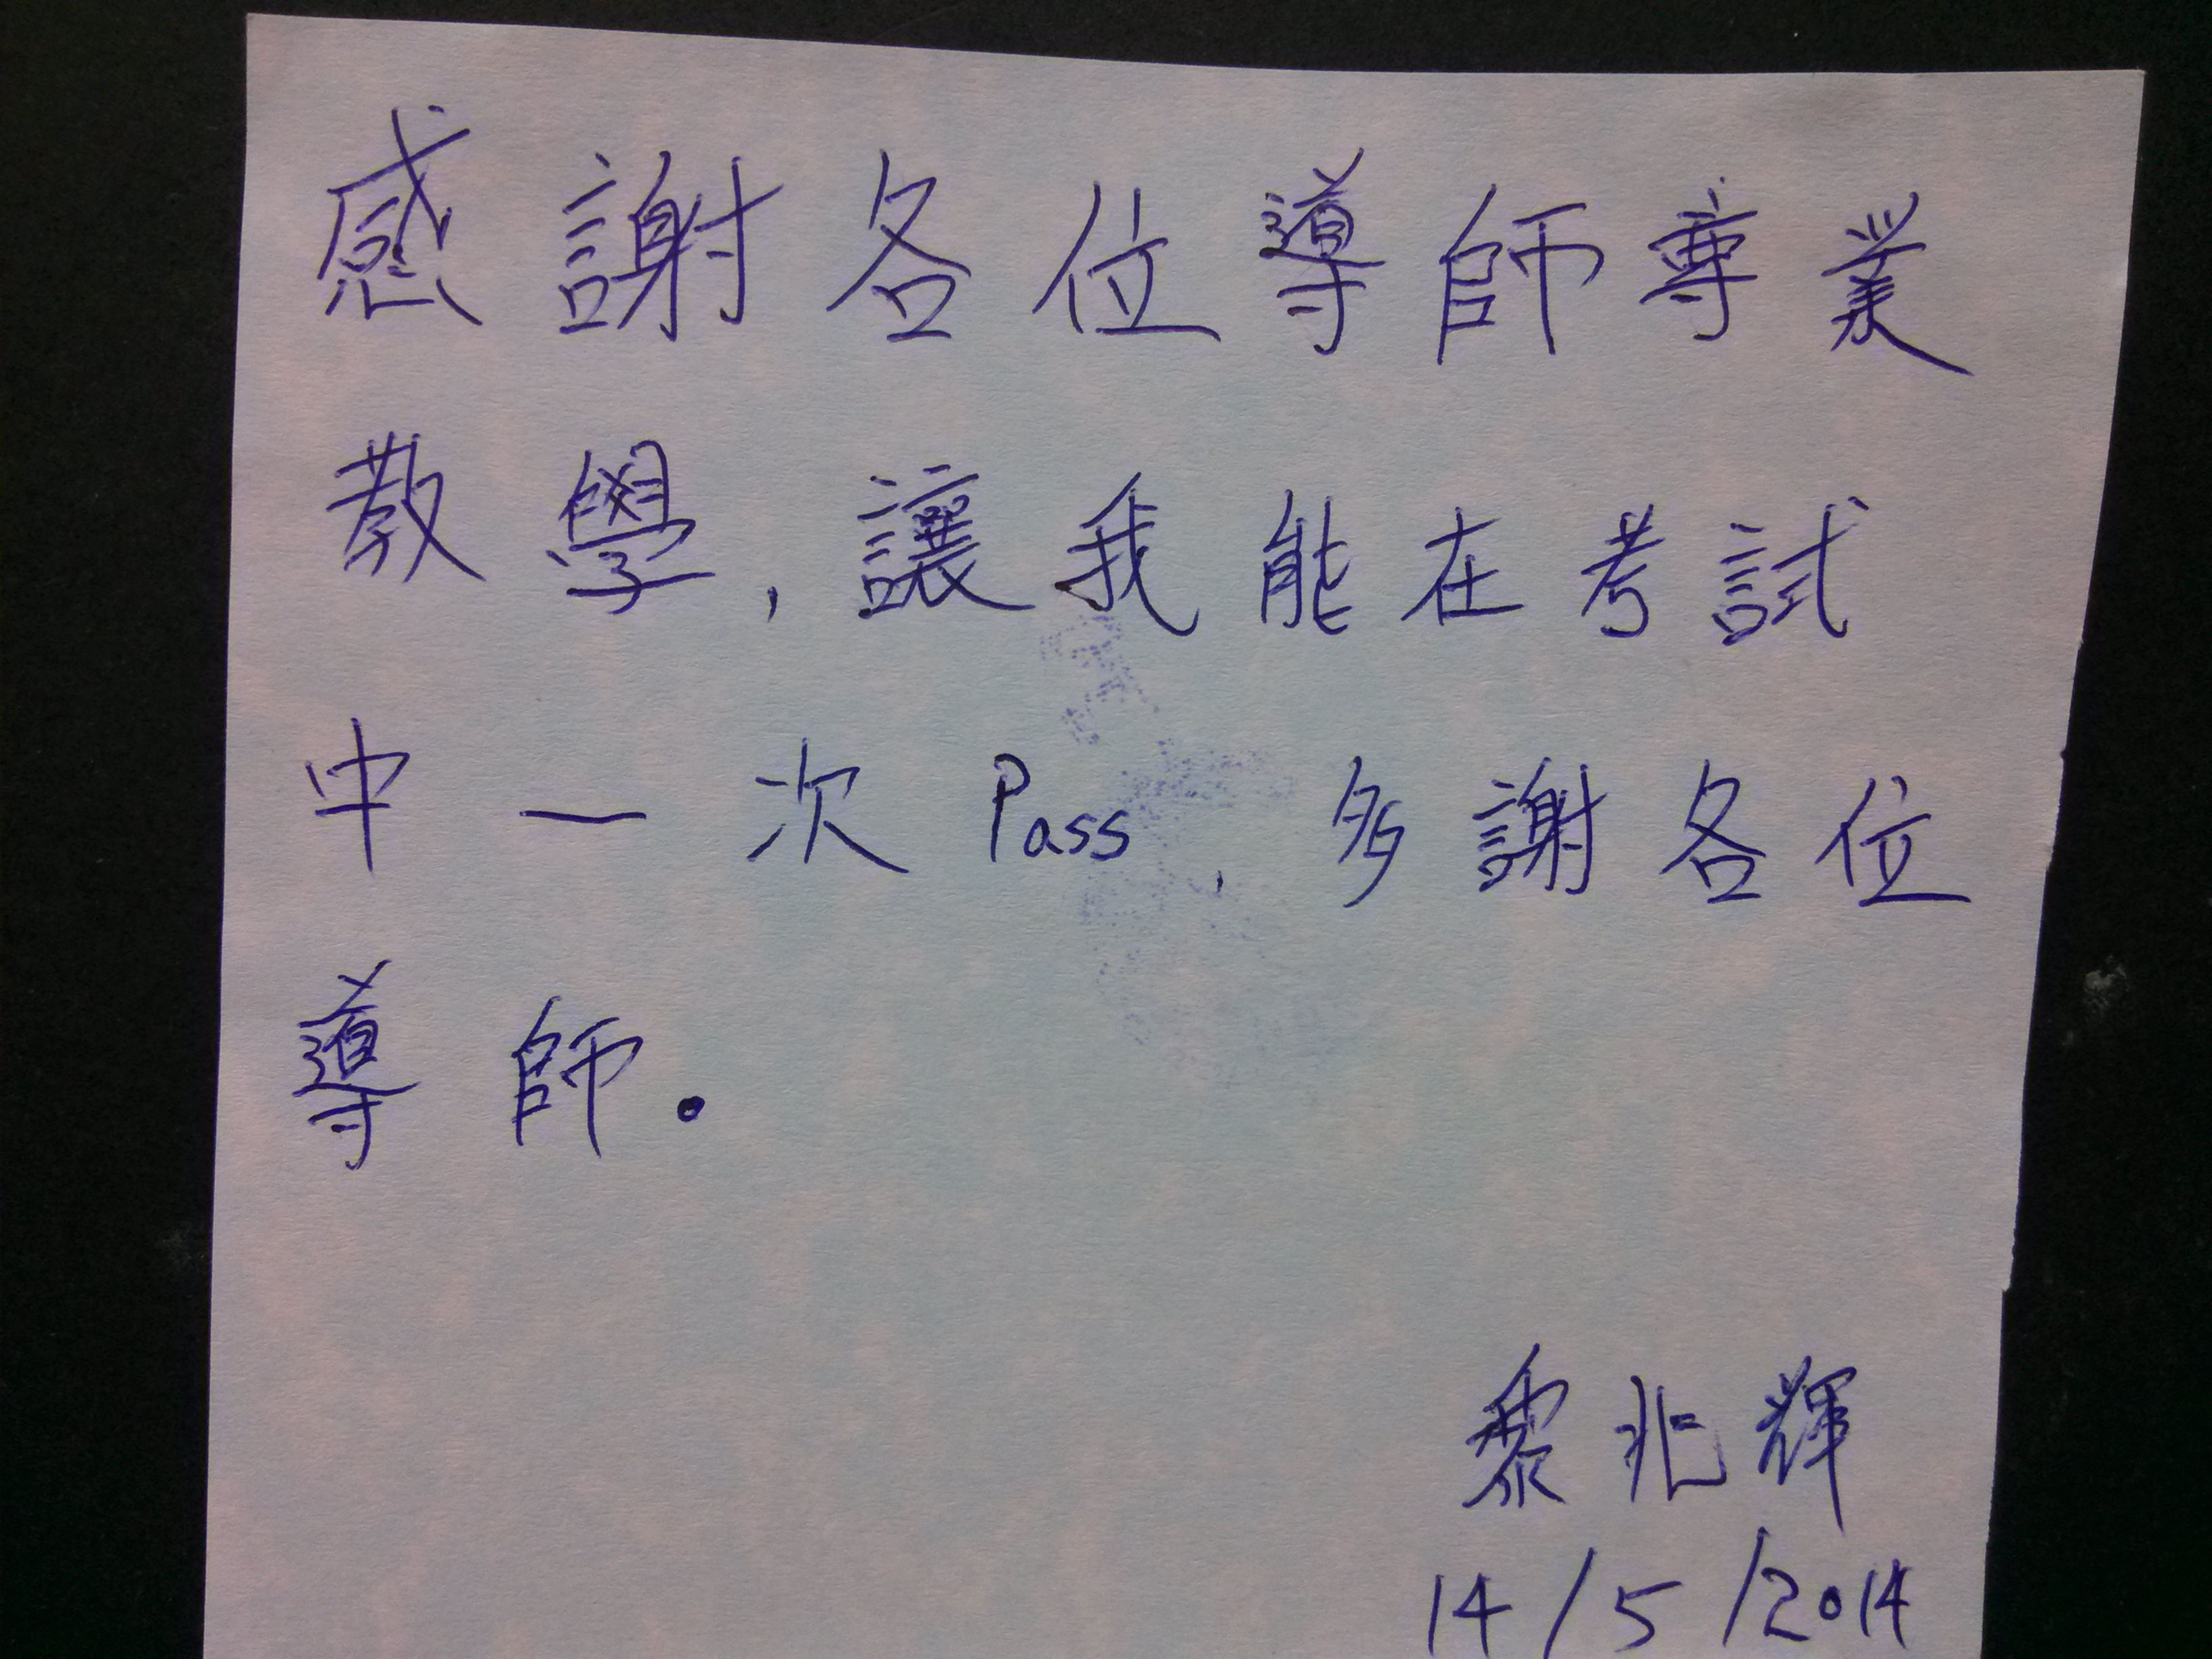 感謝各位導師專業
教學,讓我能在考試
中一次Pass,多謝各位
導師.
黎兆輝
14/5/2014